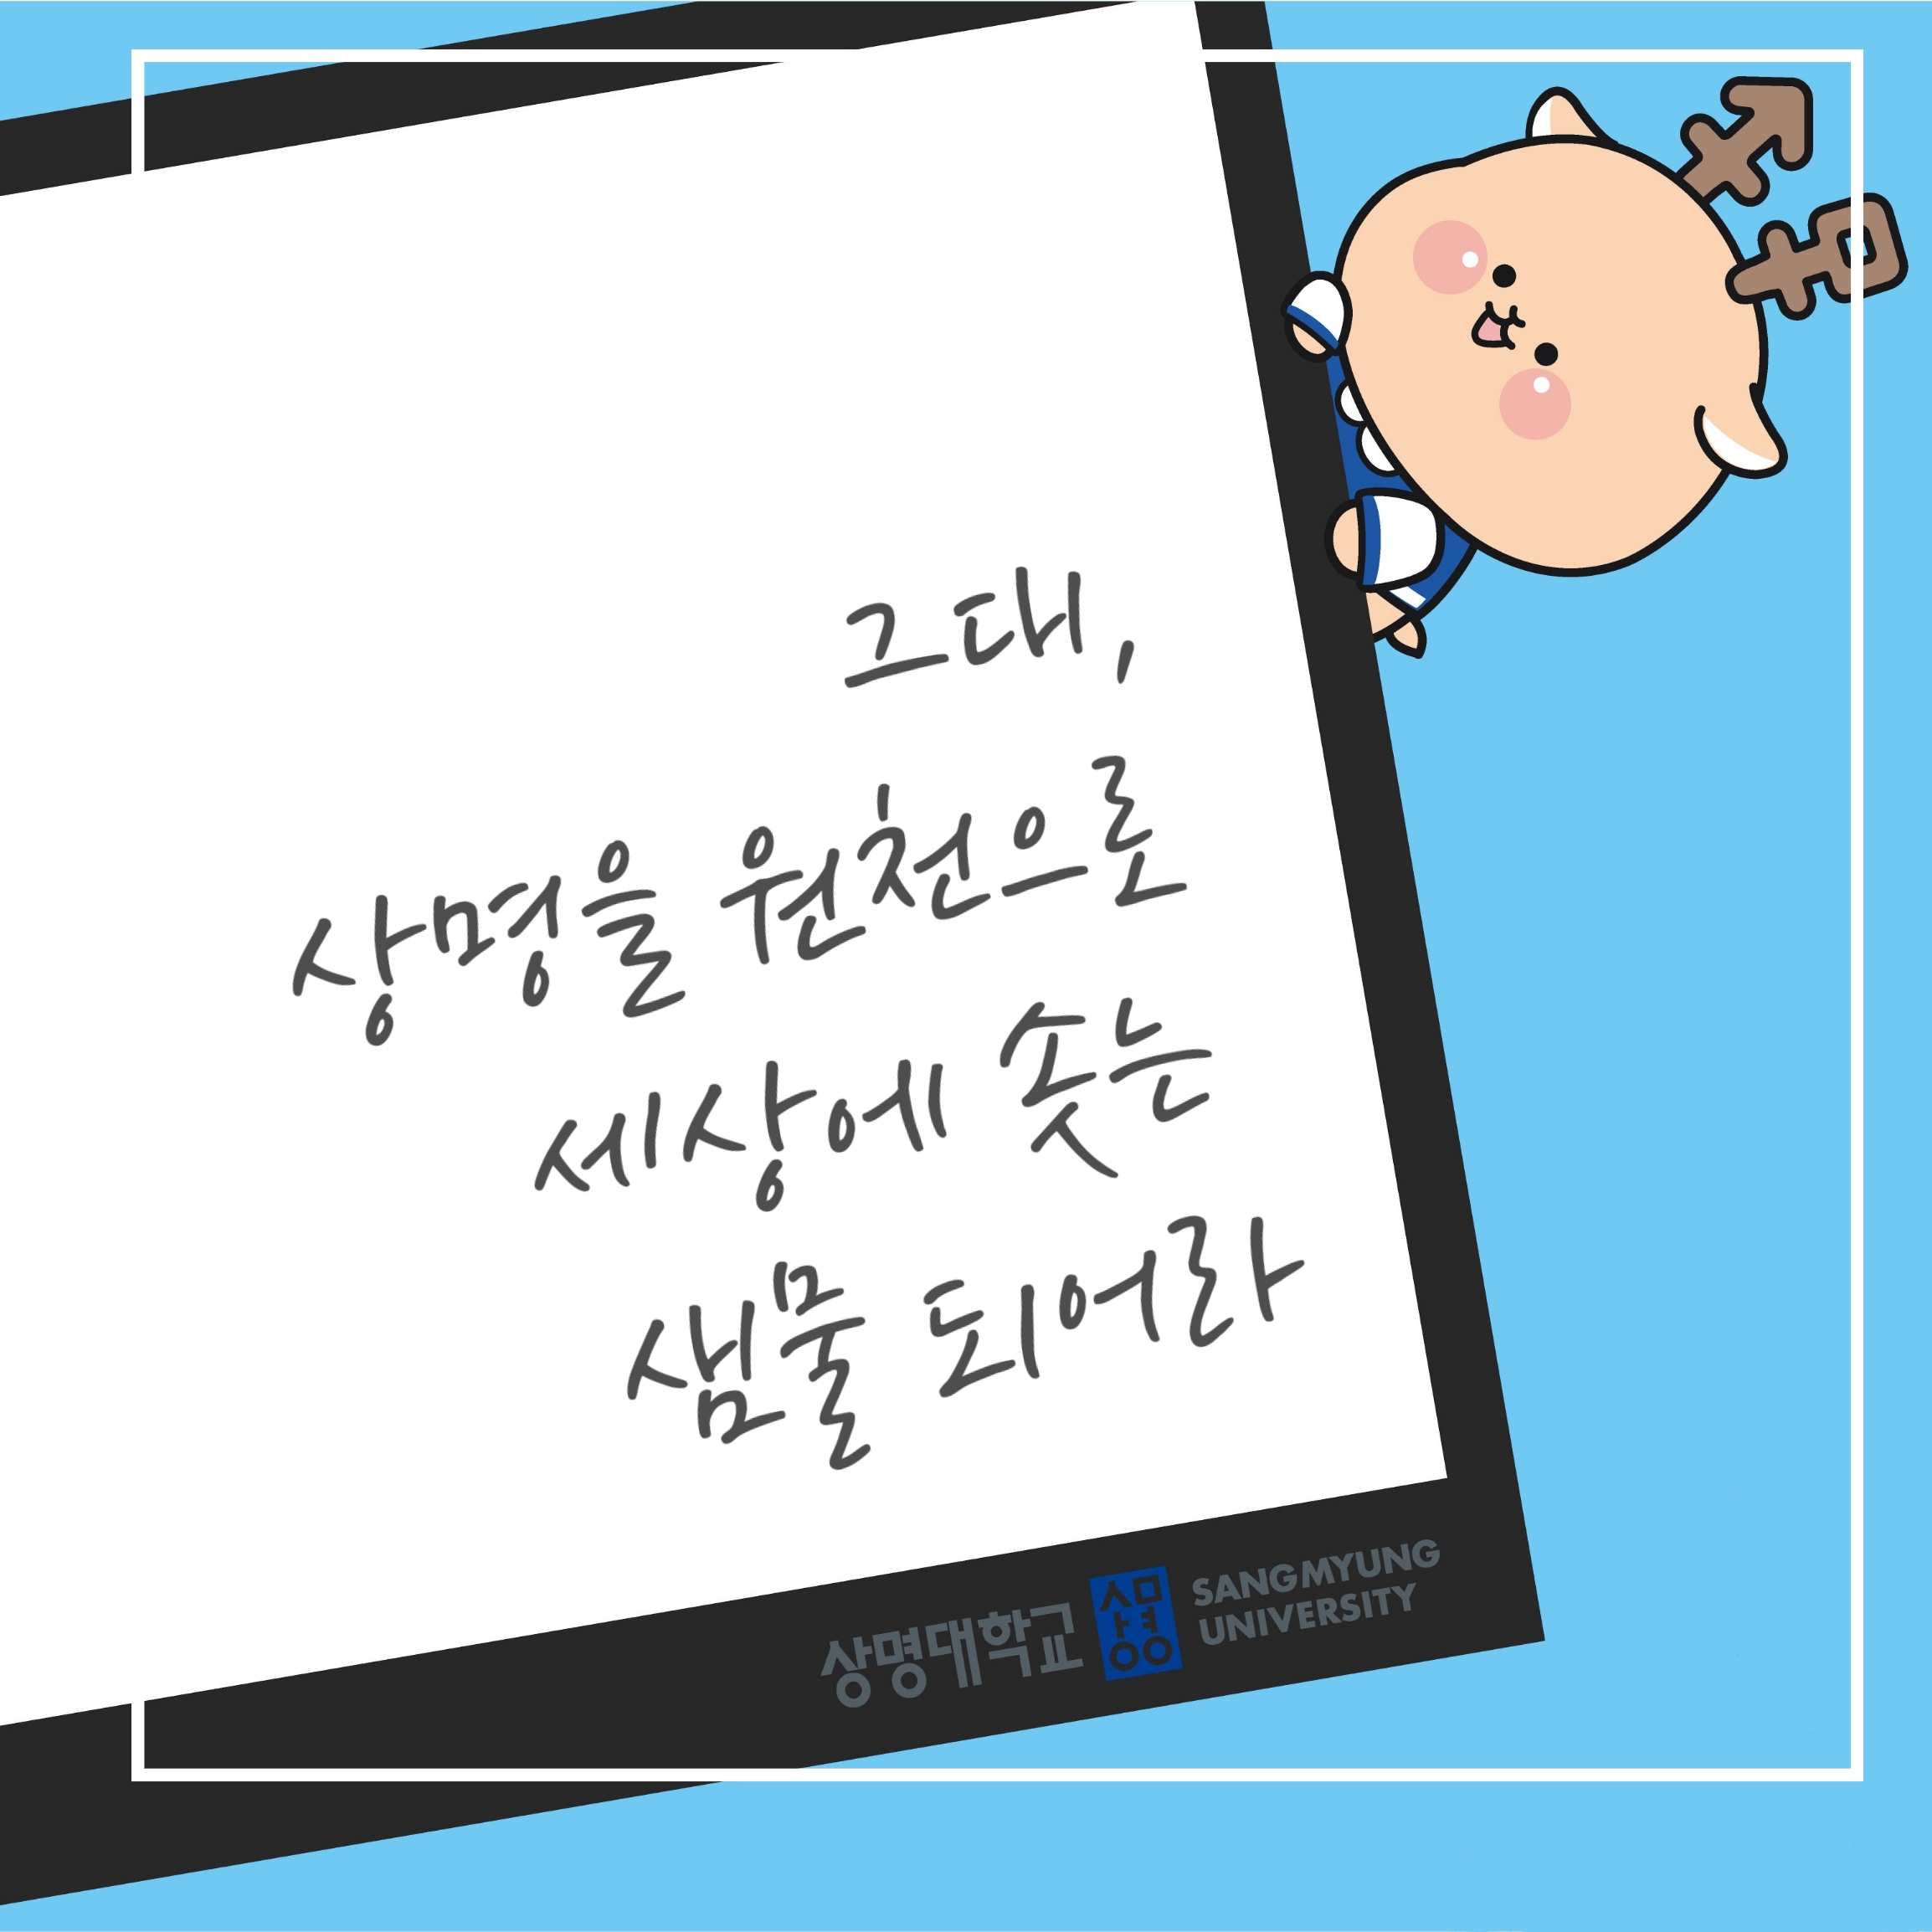 그대,
상명을 원천으로
세상에 솟는
샘물 되어라
상명대학교
상명
SANGMYUNG
UNIVERSITY